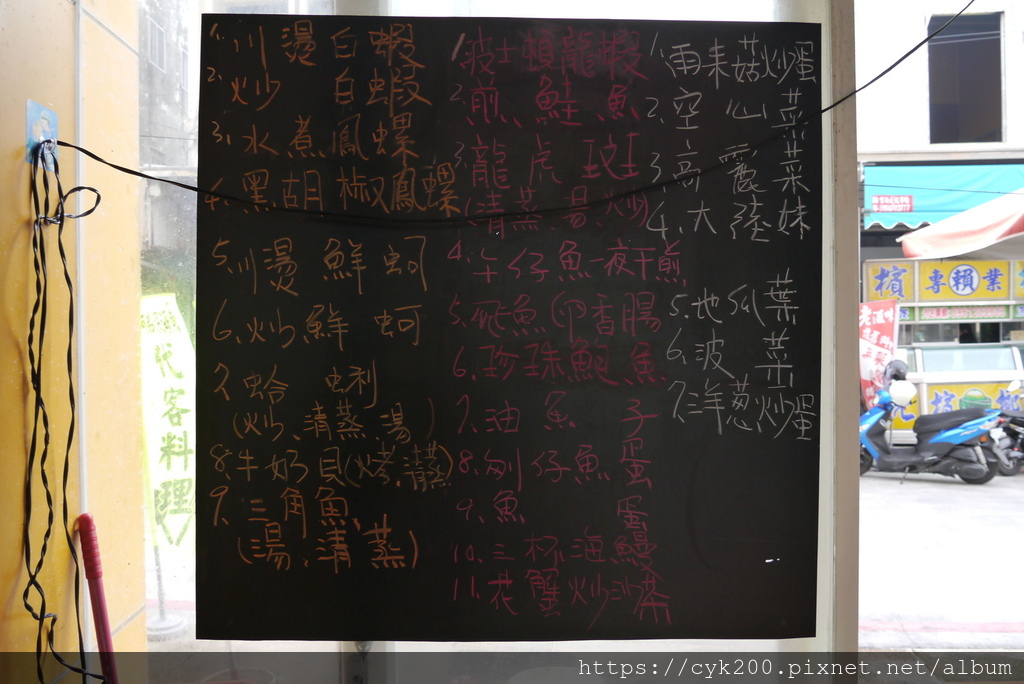 1. 川燙白蝦
2. 炒 白蝦
3. 水煮鳳螺
4. 黑胡椒鳳螺
5. 川燙鮮蚵
6. 炒鮮蚵
7. 蛤蜊
(炒、清蒸、湯)
8. 牛奶貝(烤、清蒸)
9. 三角魚
(湯、清蒸)
1. 波士頓龍蝦
2. 煎鮭魚
3. 龍虎斑
(清蒸、湯、炒)
4. 午仔魚一夜干煎
5. 飛魚卵香腸
6. 珍珠鮑魚
7. 油魚子
8. 刎仔魚蛋
9. 魚蛋
10. 三杯海鰻
11. 花蟹炒沙茶
1. 雨耒菇炒蛋
2. 空心菜
3. 高麗菜
4. 大陸妹
5. 地瓜葉
6. 波菜
7. 洋葱炒蛋
代客料理
檳 專賴業 檳
老滋味
https://cyk200.pixnet.net/album